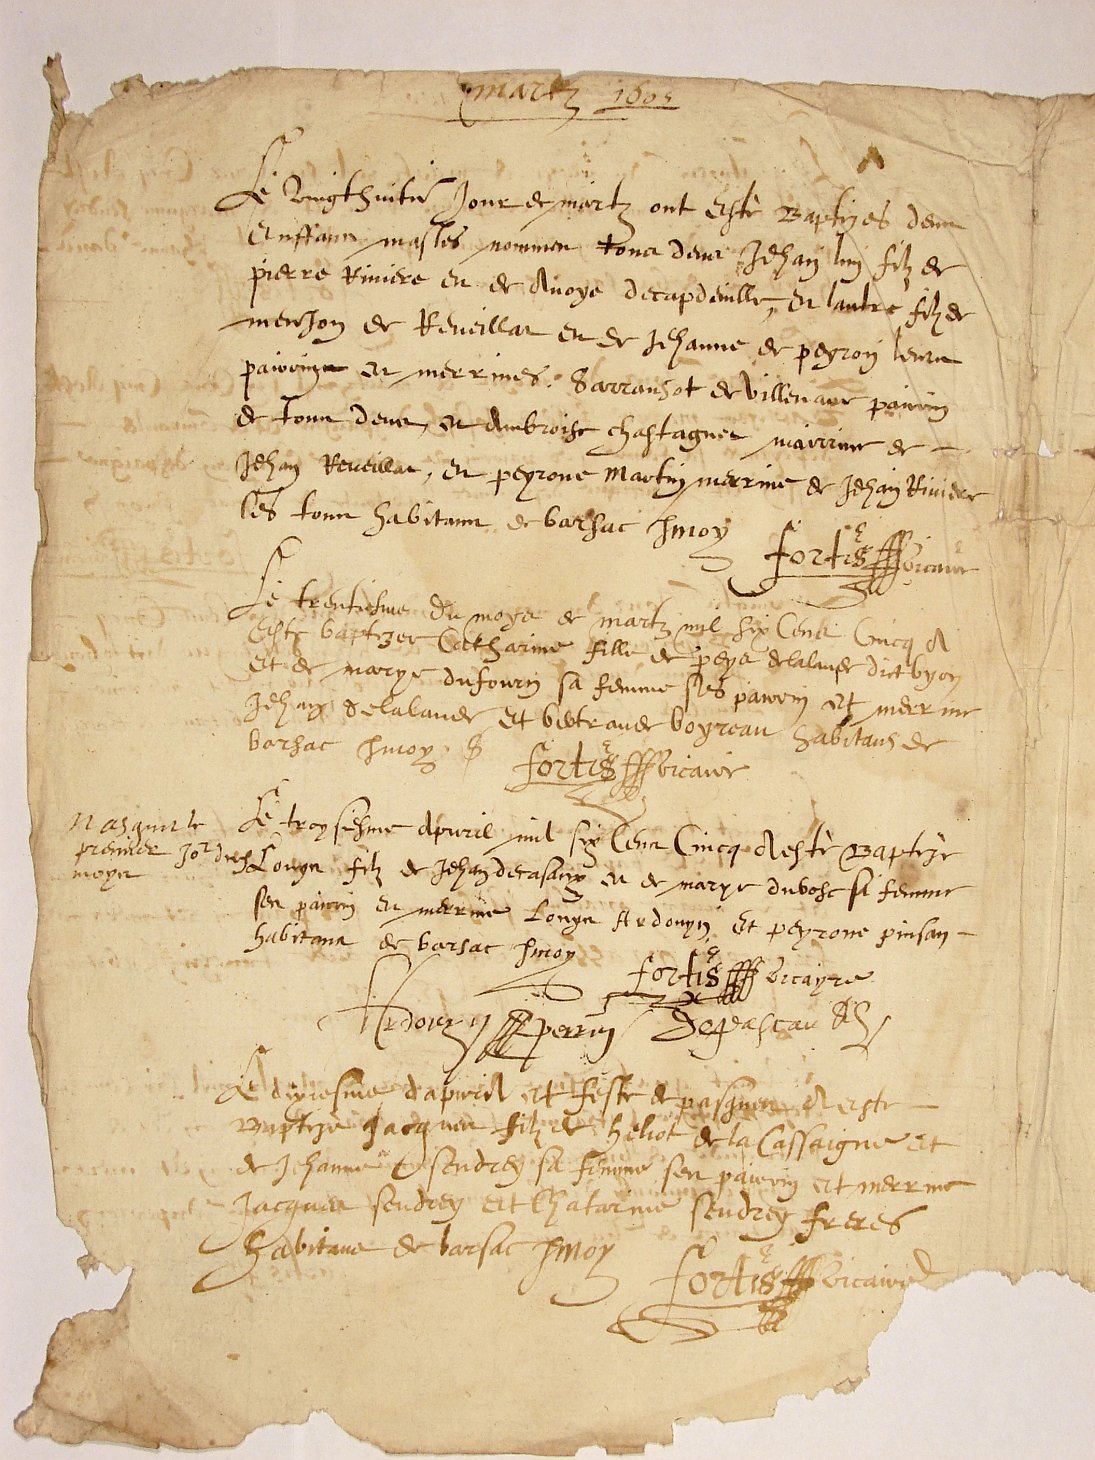 martz 1605
Le vingthuitie Jour de martz ont este Baptizes deux
enffans masles nommes tous deux Jehan lun filz de
pierre Riviere et de Anoye decapdeville, et lautre filz de
menjon de Reveillat et de Jehanne de peyron leurs
pairins et merrines. Sarransot de Villenave pairin
de tous deux, et Ambroise chastagnet mairrine de
Jehan Reveillat, et peyrone Martin merrine de Jehan Riviere
les tous habitans de barsac p moy
fortis vicaire
Le trentiesme du moys de martz mil six Cens Cincq A
este baptzee Catharine fille de peys delalande dict byon
et de marye dufourn sa femme ses pairin et merrine
Jehan delalande et bertrande boyreau habitans de
barsac p moy
fortis vicaire
Nasquit le
premier Jor dud
moys
Le troysiesme Apvril mil six Cens Cincq A este Baptize
Louys filz de Jehan decasaux et de marye dubosc sa femme
ses pairin et merrine Louys Ardouyn et peyrone pinsan
habitans de barsac p moy
fortis vicayre
Ardouyn perrin Degascau
Le dixiesme dapvril et feste de pasques A este
Baptize Jacques filz de heliot de la Cassaigne et
de Jehanne sendrey sa femme ses pairin et merrine
Jacques sendrey et Chatarine sendrey freres
habitans de barsac p moy
fortis vicaire